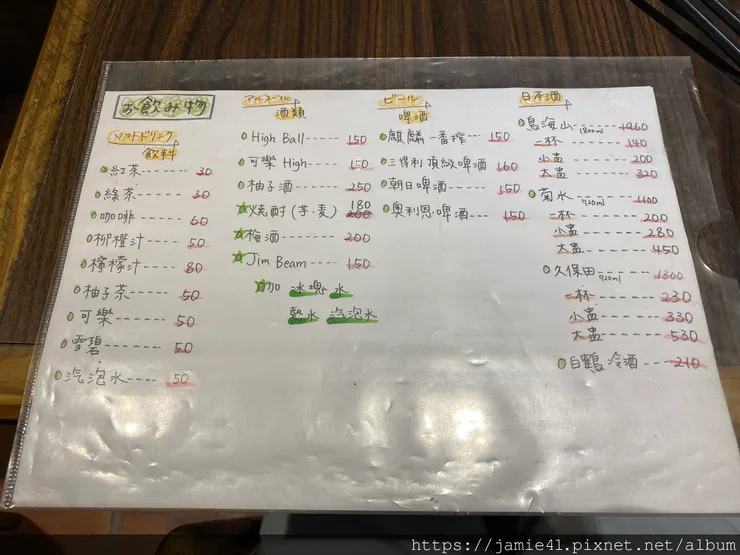 お飲み物
ソフトドリンク
飲料
紅茶---- 30
綠茶---- 30
咖啡---- 60
柳橙汁---- 50
檸檬汁---- 80
柚子茶---- 50
可樂---- 50
雪碧---- 50
汽泡水---- 50
アルコール
酒類
High Ball---- 150
可樂 High---- 150
柚子酒---- 250
燒酎(芋.麦) 180 200
梅酒---- 200
Jim Beam---- 150
加 冰塊 水
熱水 汽泡水
ビール
啤酒
麒麟一番搾--- 150
三得利頂級啤酒 160
朝日啤酒---- 150
奧利恩啤酒--- 150
日本酒
鳥海山 1800ml 1960
一杯---- 140
小盅---- 200
太盅---- 320
菊水 720ml 1100
一杯---- 200
小盅---- 280
太盅---- 450
久保田 720ml 1300
一杯---- 230
小盅---- 330
太盅---- 530
白鶴 冷酒---- 210
https://jamie41.pixnet.net/album